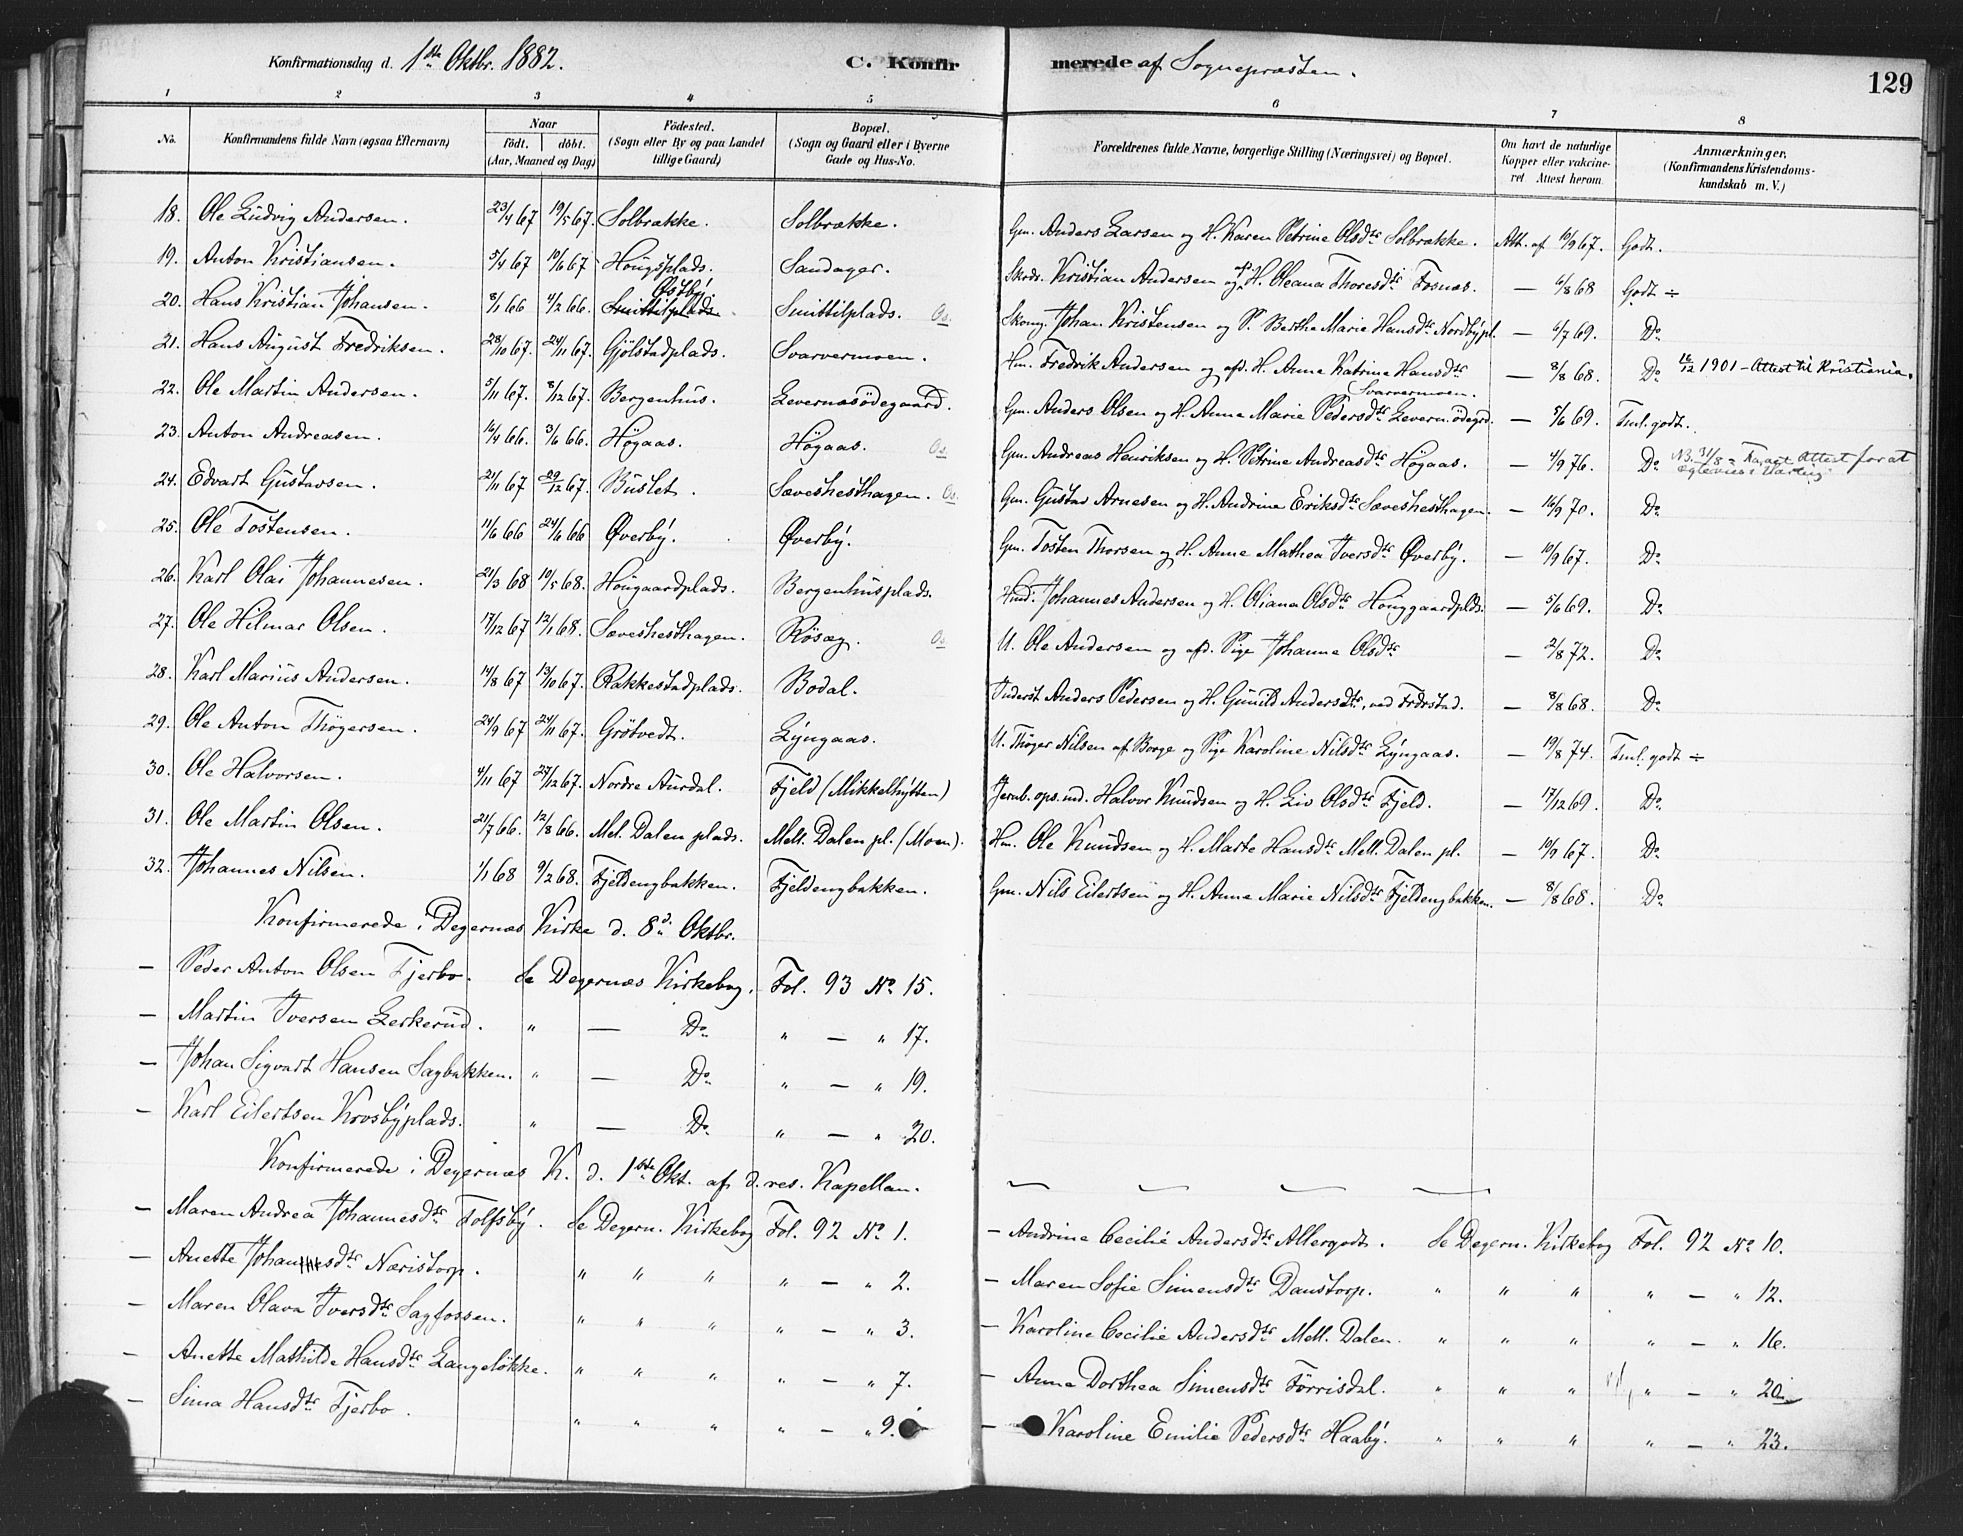 Konfirmationsdag d. 1ste Oktbr. 1882. C. Konfirmerede af Sognepræsten. 129
1 2 3 4 5 6 7 8
No. Konfirmandens fulde Navn (ogsaa Efternavn) Naar födt. döbt. (Aar, Maaned og Dag) Födested. (Sogn eller By og paa Landet tillige Gaard) Bopæl. (Sogn og Gaard eller i Byerne Gade og Hus-No. Forældrenes fulde Navne, borgerlige Stilling (Næringsvei) og Bopæl. Om havt de naturlige Kopper eller vaccineret Attest herom Anmærkninger. (Konfirmandens Kristendomskundskab m. V.)
18. Ole Ludvig Andersen. 23/4 67 19/5 67. Solbrække. Solbrække. Gm. Anders Larsen og H. Karen Petrine Olsdtr Solbrække. Att. af 10/9 67. Godt.
19. Anton Kristiansen. 5/4 67 10/6 67 Hougsplads. Sandager. Kristian Andersen og H. Oleana Thoresdtr Fosnæs. — 6/8 68 Godt ÷
20. Hans Kristian Johansen. 8/1 66 4/2 66. Østby Smittilplads. Smittilplads. Os. Johan Kristensen og P. Berthe Marie Hansdtr Nordbypl. — 6/7 69. Do
21. Hans August Fredriksen. 28/10 67. 24/11 67. Gjölstadplads. Svarvermoen. Hm. Fredrik Andersen og afd. H. Anne Katrine Hansdtr Svarvermoen. — 8/8 68. Do 16/12 1901 – Attest til Kristiania.
22. Ole Martin Andersen. 5/11 67. 8/12 67. Bergenhus. Levernæsödegaard. Gm. Anders Olsen og H. Anne Marie Pedersdtr Levern. ödegrd. — 5/6 69. Tml. godt.
23. Anton Andreasen. 16/4 66. 3/6 66. Högaas. Högaas. Os. Gm. Andreas Henriksen og H. Petrine Andreasdtr Högaas. — 4/9 76. Do
24. Edvart Gustavsen. 21/11 67 29/12 67. Buslet. Sæveshesthagen. Os. Gm. Gustav Arnesen og H. Andrine Eriksdtr Sæveshesthagen. — 16/9 70. Do
25. Ole Tostensen. 11/6 66 24/6 66 Øverby. Øverby. Gm. Tosten Thorsen og H. Anne Mathea Iversdtr Øverby. — 10/9 67. Do
26. Karl Olai Johannesen. 21/3 68 10/5 68. Hougaardplads. Bergenhusplads. Johannes Andersen og H. Oliana Olsdtr Houggaardplds. — 5/6 69. Do
27. Ole Hilmar Olsen. 17/12 67 12/1 68. Sæveshesthagen. Rösæg. Os U. Ole Andersen og afd. Pige Johanne Olsdtr — 2/8 72. Do
28. Karl Marius Andersen. 14/8 67 13/10 67. Rakkestadplads. Bodal. Inderst Anders Pedersen og H. Gunild Andersdtr, ved Fredrstad. — 8/8 68. Do
29. Ole Anton Thögersen. 24/9 67 24/11 67. Grötvedt. Lyngaas. U. Thöger Nilsen af Borge og Pige Karoline Nilsdtr Lyngaas. — 19/8 74. Tml. godt ÷
30. Ole Halvorsen. 4/11 67 27/12 67. Nordre Aurdal. Fjeld (Mikkelhytten) Jernb. ops.md. Halvor Knudsen og H. Liv Olsdtr Fjeld. — 17/12 69. Do
31. Ole Martin Olsen. 21/7 66. 12/8 66. Mel. Dalen plads. Mell. Dalen pl. (Moen). Hm. Ole Knudsen og H. Marte Hansdtr Mell. Dalen pl. — 10/9 67. Do
32. Johannes Nilsen. 1/1 68 9/2 68. Fjeldengbakken. Fjeldengbakken. Gm. Nils Eilertsen og H. Anne Marie Nilsdtr Fjeldengbakken. — 8/8 68. Do
Konfirmerede i Degernæs Kirke d. 8d Oktbr.
— Peder Anton Olsen Fjerbo. Se Degernæs Kirkebog, Fol. 93 No 15.
— Martin Iversen Lerkerud. " — Do " — " 17.
— Johan Sigvart Hansen Sagbakken. " — Do " — " 19.
— Karl Eilertsen Krosbyplads. " — Do " — " 20.
Konfirmerede i Degernæs K. d. 1ste Okt. af d. res. Kapellan.
— Maren Andrea Johannesdtr Tolfsby. Se Degern. Kirkebog Fol. 92 No 1. — Andrine Cecilie Andersdtr Allergodt. Se Degern. Kirkebog Fol. 92 No 10.
— Anette Johannesdtr Næristorp. " " " " — " 2. — Maren Sofie Simensdtr Danstorp. " " " " — " 12.
— Maren Olava Iversdtr Sagfossen. " " " " — " 3. — Karoline Cecilie Andersdtr Mell. Dalen. " " " " — " 16.
— Anette Mathilde Hansdtr Langelökke. " " " " — " 7. — Anna Dorthea Simensdtr Törrisdal. " " " " — " 20.
— Sina Hansdtr Fjerbo. " " " " — " 9. — Karoline Emilie Pedersdtr Haaby. " " " " — " 23.